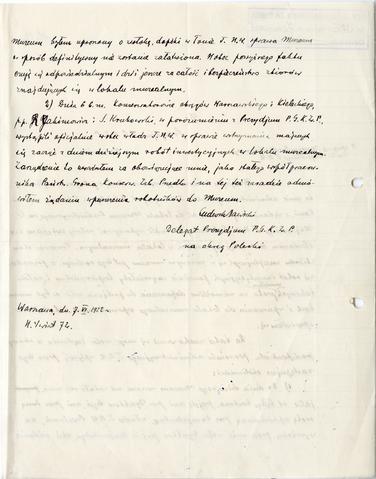 Muzeum byłem uproszony o zwłokę, dopóki w łonie T.N.W. sprawa Muzeum
w sposób definitywny nie zostanie załatwiona. Wobec powyższego faktu
czuję się odpowiedzialnym i dziś jeszcze za całość i bezpieczeństwo zbiorów
znajdujących się w lokalu muzealnym.
2) Dnia 6 b.m. konserwatorowie okręgów Warszawskiego i Kieleckiego,
pp. Jakimowicz i S. Krukowski, w porozumieniu z Prezydjum P.G.K.Z.P.
wystąpili oficjalnie wobec władz T.N.W. w sprawie wstrzymania mających
się zacząć z dniem dzisiejszym robót inwestycyjnych w lokalu muzealnym.
Zarządzenie to uważałem za obowiązujące mnie, jako stałego współpracow-
nika Państw. Grona Konserw. Zab. Przedh. i na tej też zasadzie odmó-
wiłem żądaniu wpuszczenia robotników do Muzeum.
Ludwik Sawicki
Delegat Prezydjum P.G.K.Z.P.
na okręg Poleski
Warszawa, dn. 7. 1922 r.
72.